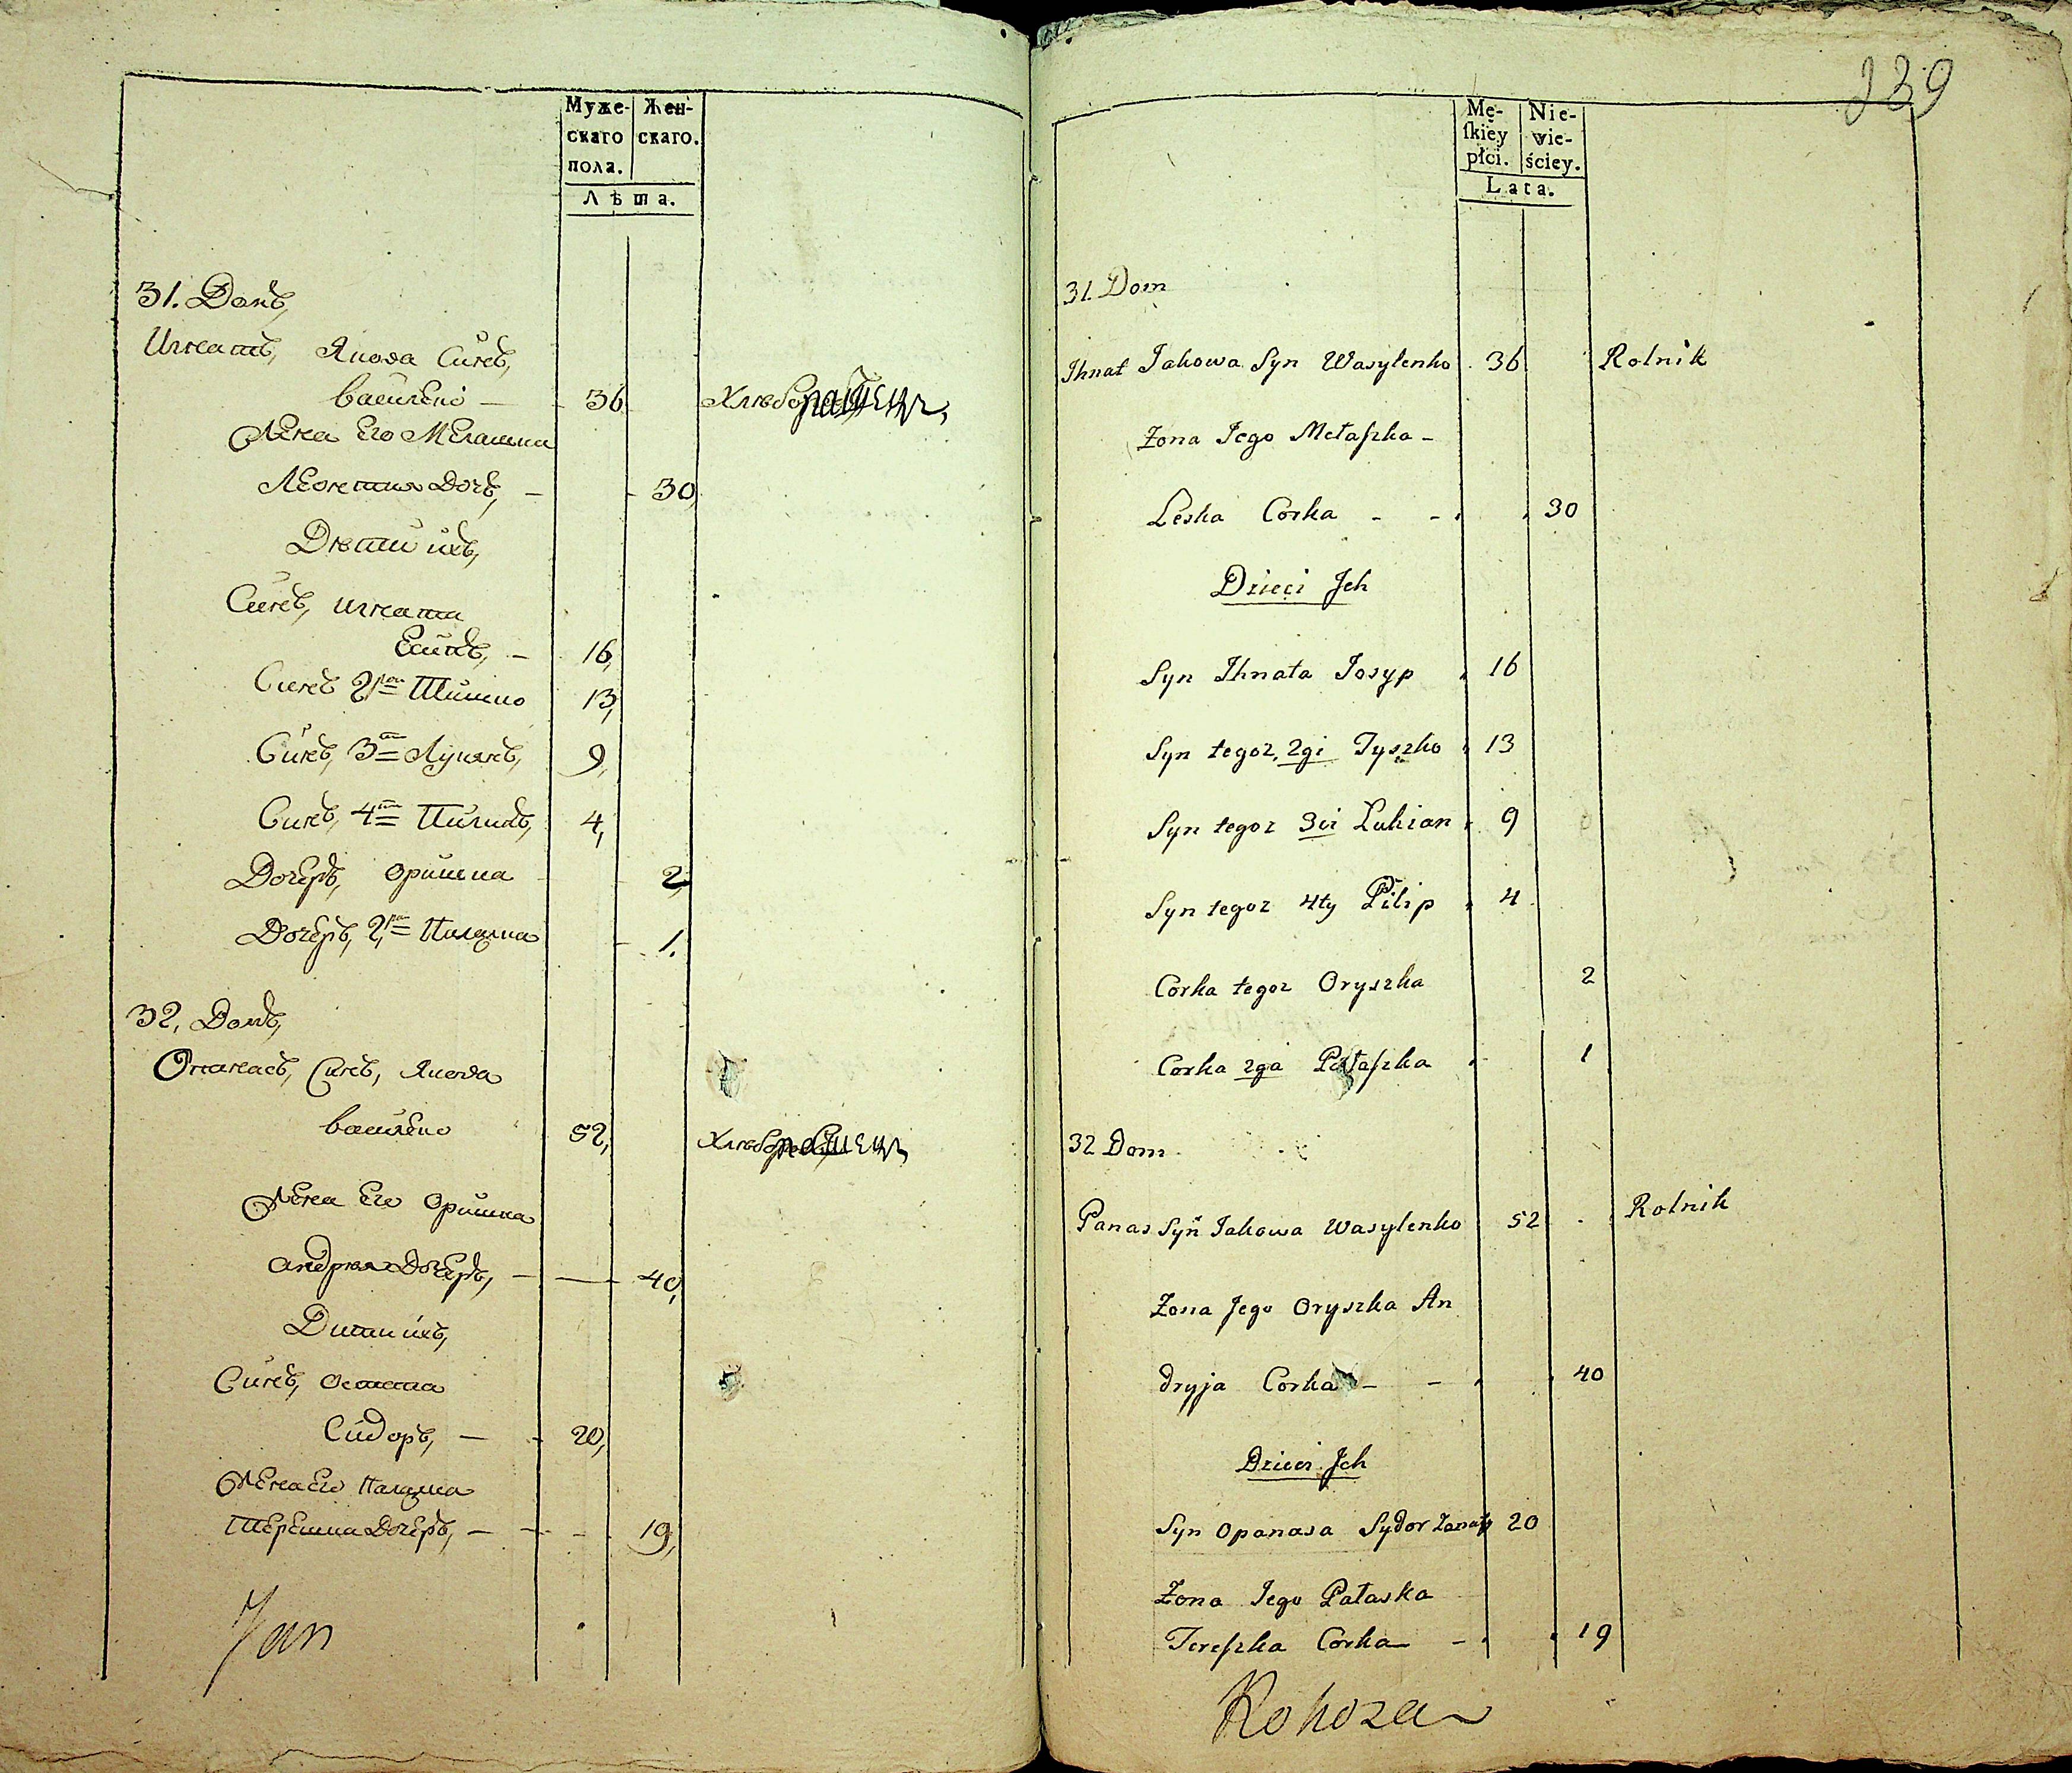 Муже-
скаго
пола.
Жен-
скаго.
Лѣта.
31. Домъ,
Игнатъ, Якова Синъ,
василенко —
36
Жена Его Мелашка
Леонтия Дочь, —
30,
Дѣти ихъ,
Синъ, игната
Есипъ, —
16,
Синъ 2й Тишко
13,
Синъ, 3й Лукянъ,
9,
Синъ, 4й Пилипъ,
4,
Дочеръ, оришка
2,
Дочеръ, 2я Палажка
1.
32, Домъ,
Опанасъ, Синъ, Якова
василенко
52,
Жена Его оришка
андрія Дочеръ, —
40,
Дити ихъ,
Синъ,
Сидоръ, —
20,
Жена Его Палажка
Терешка Дочеръ, —
19,
Jan
239
Mę-
ſkiey
płci.
Nie-
wie-
ściey.
Lata.
31. Dom
Ihnat Jakowa Syn Wasylenko 36 Rolnik
Żona Jego Mełaſzka –
Leska Corka - - 30
Dzieci Jch
Syn Ihnata Josyp 16
Syn tegoz, 2gi Tyszko 13
Syn tegoz 3ci Łukian 9
Syn tegoz 4ty Pilip 4
Corka tegoz Oryszka 2
Corka 2ga Pałaſzka 1
32 Dom
Panas Syn Jakowa Wasylenko 52 Rolnik
Żona Jego Oryszka An
dryja Corka – – 40
Dzieci Jch
Syn Opanasa Sydor Żonaty 20
Żona Jego Pałaska
Tereſzka Corka – 19
Rohoza